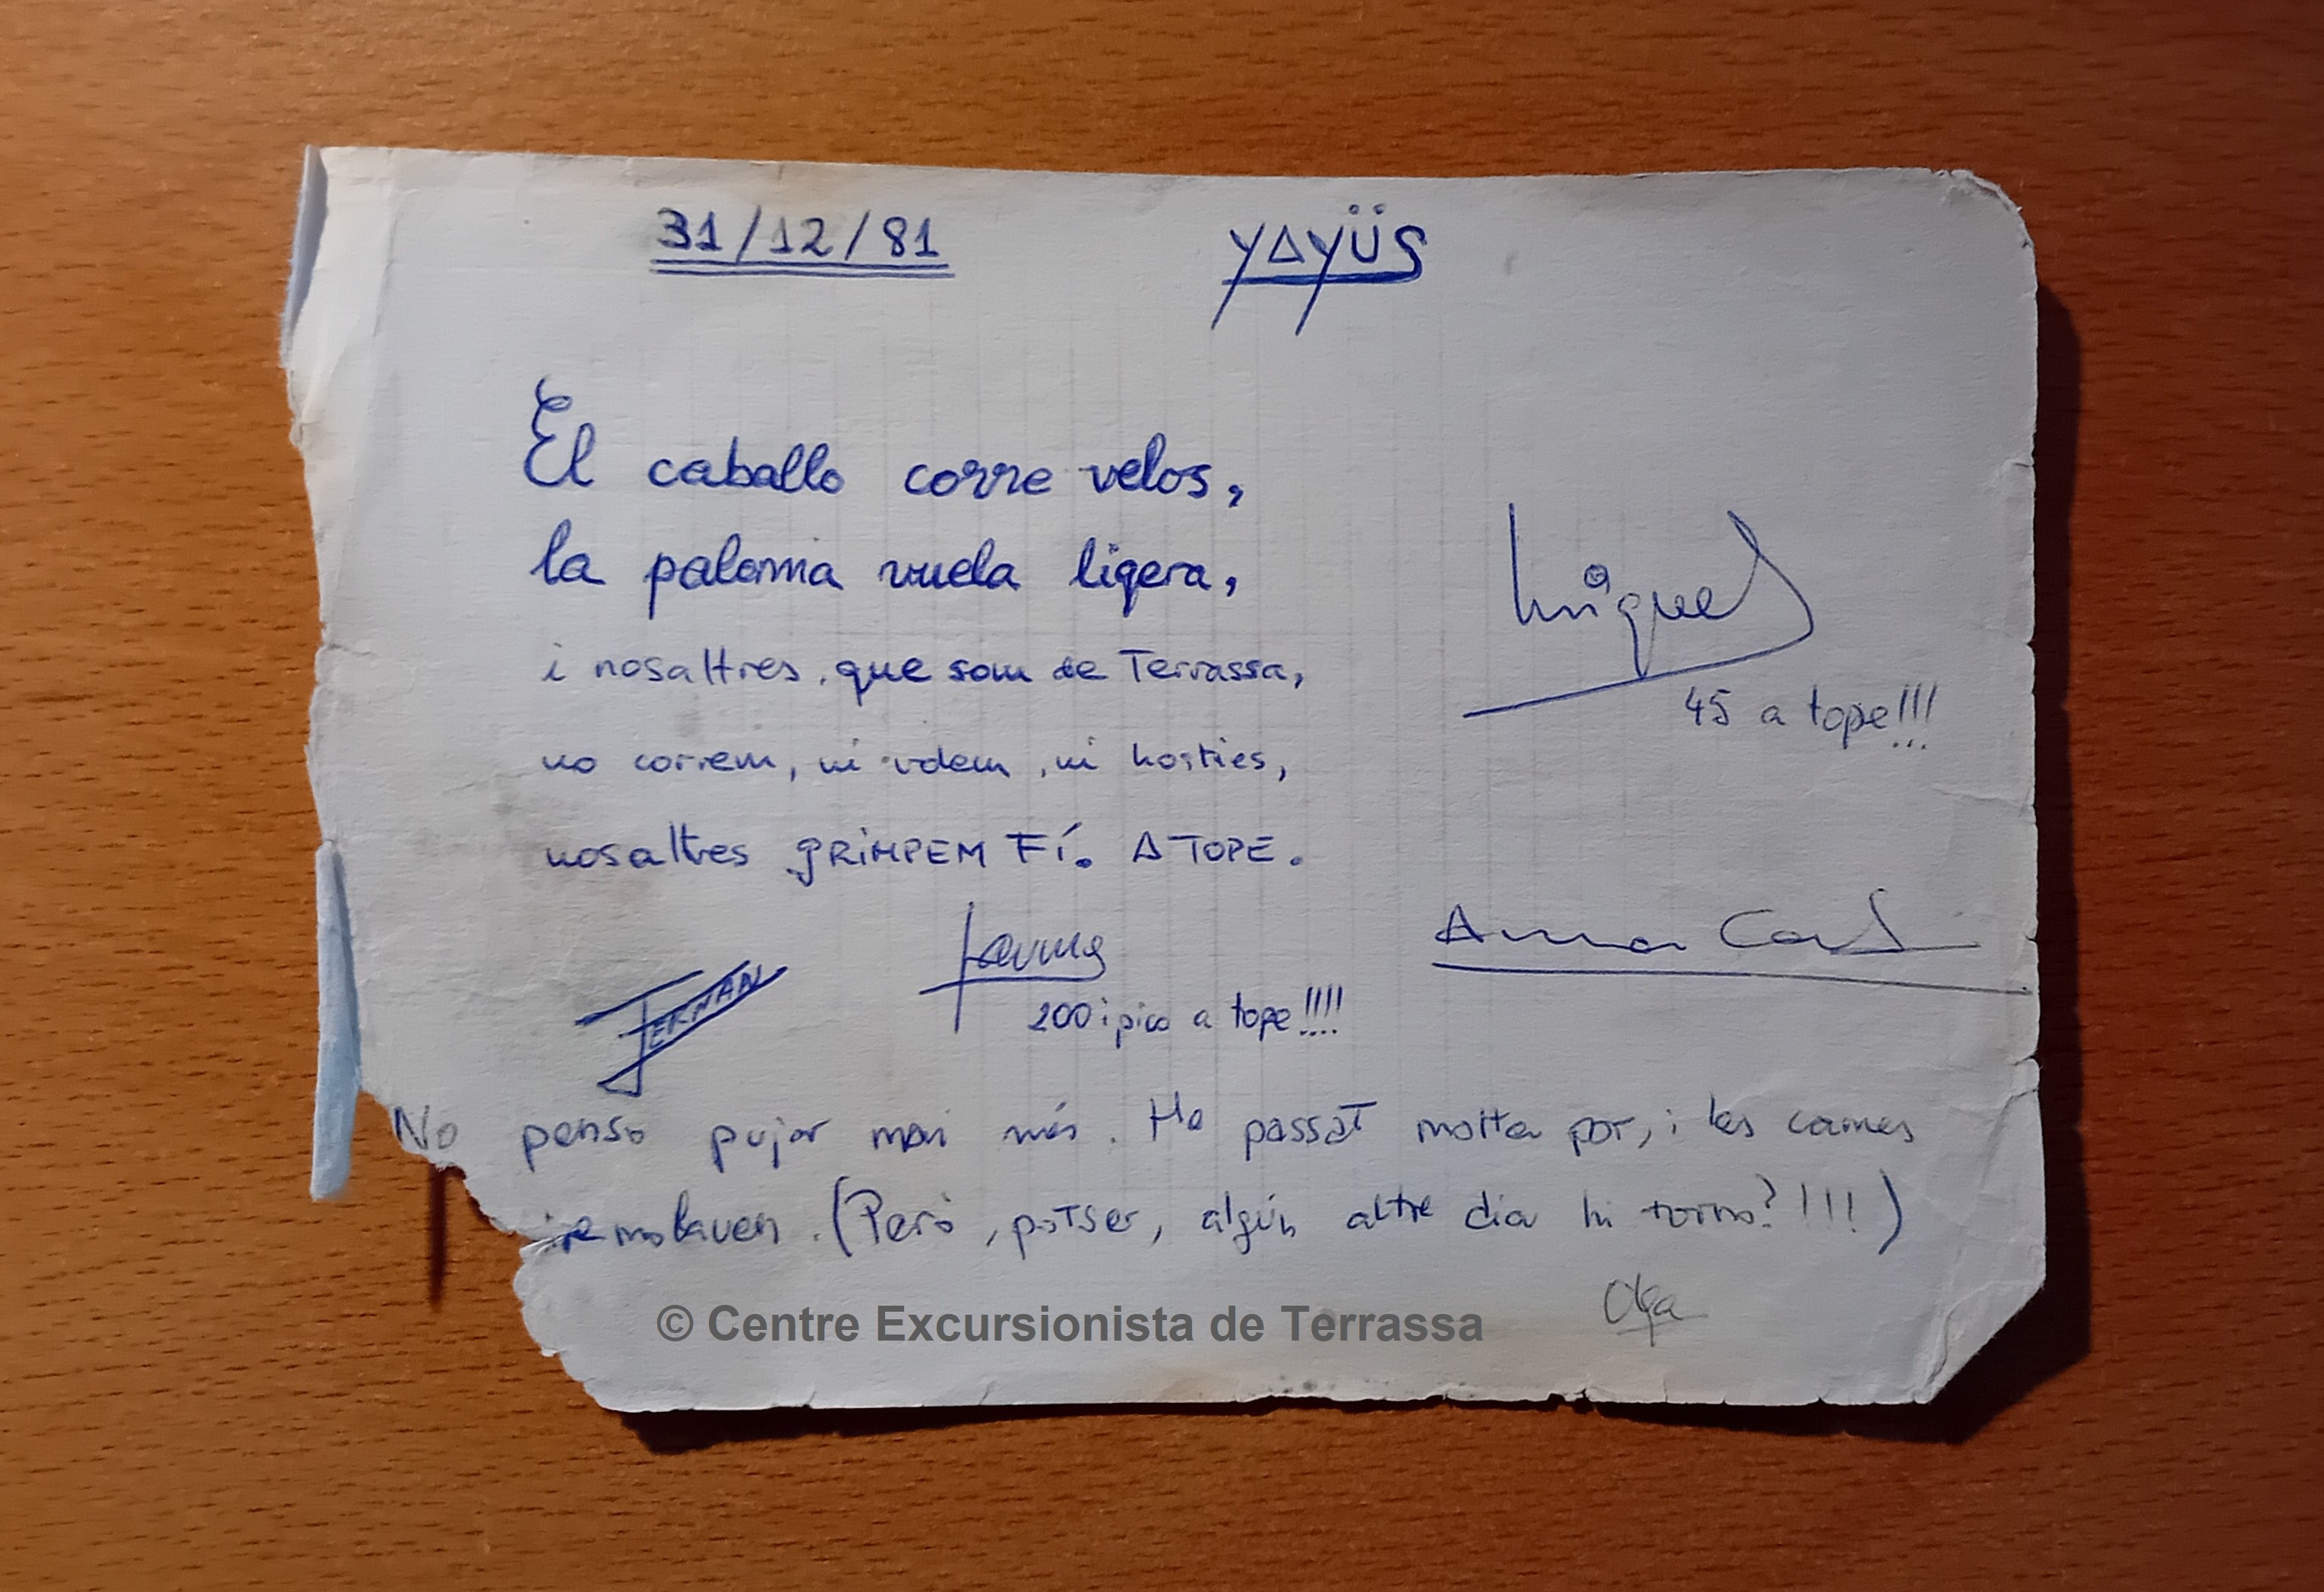 31/12/81 YAYÜS
El caballo corre velos,
la paloma vuela ligera,
i nosaltres, que som de Terrassa,
no correm, ni volem, ni hosties,
nosaltres GRIMPEM FÍ. A TOPE.
Miquel
45 a tope!!!
FERNAN
Jaume
200 i pico a tope!!!!
Anna
No penso pujar mai més. He passat molta por, i les cames
tremolaven. (Però, potser, algún altre dia hi torno?!!!)
Olga
© Centre Excursionista de Terrassa